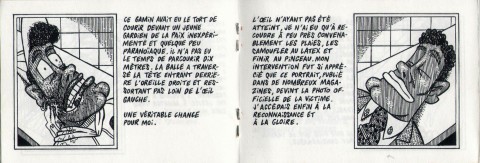 CE GAMIN AVAIT EU LE TORT DE
COURIR DEVANT UN JEUNE
GARDIEN DE LA PAIX INEXPÉRI-
MENTÉ ET QUELQUE PEU
PARANOÏAQUE, IL N'A PAS EU
LE TEMPS DE PARCOURIR DIX
MÈTRES. LA BALLE A TRAVER-
SÉ LA TÊTE ENTRANT DERRIÈ-
RE L'OREILLE DROITE ET RES-
SORTANT PAS LOIN DE L'ŒIL
GAUCHE.
UNE VÉRITABLE CHANCE
POUR MOI.
L'ŒIL N'AYANT PAS ÉTÉ
ATTEINT, JE N'AI EU QU'À RE-
COUDRE À PEU PRÈS CONVENA-
BLEMENT LES PLAIES, LES
CAMOUFLER AU LATEX ET
FINIR AU PINCEAU. MON
INTERVENTION FUT SI APPRÉ-
CIÉE QUE CE PORTRAIT, PUBLIÉ
DANS DE NOMBREUX MAGA-
ZINES, DEVINT LA PHOTO OF-
FICIELLE DE LA VICTIME.
J'ACCÉDAIS ENFIN À LA
RECONNAISSANCE ET
À LA GLOIRE.